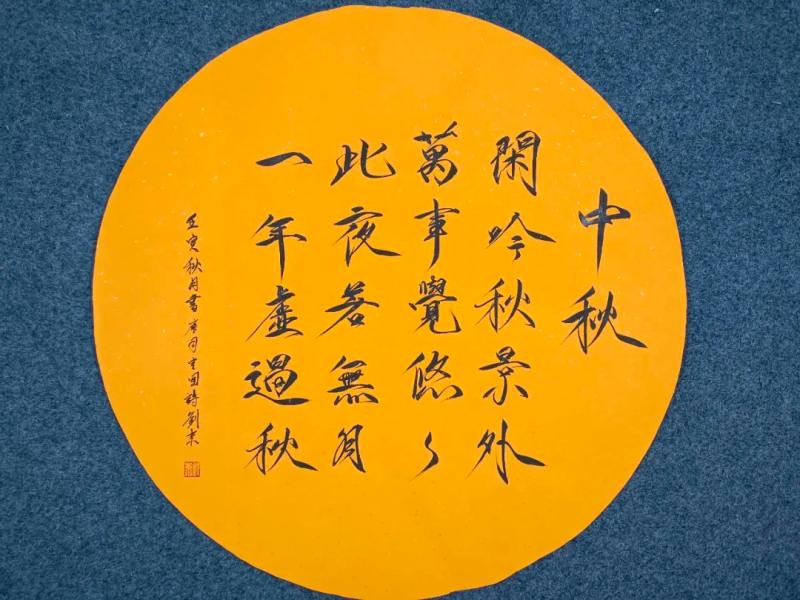 中秋
閑吟秋景外
萬事覺悠々
此夜若無月
一年虛過秋
壬寅秋月書唐司空圖詩劉東